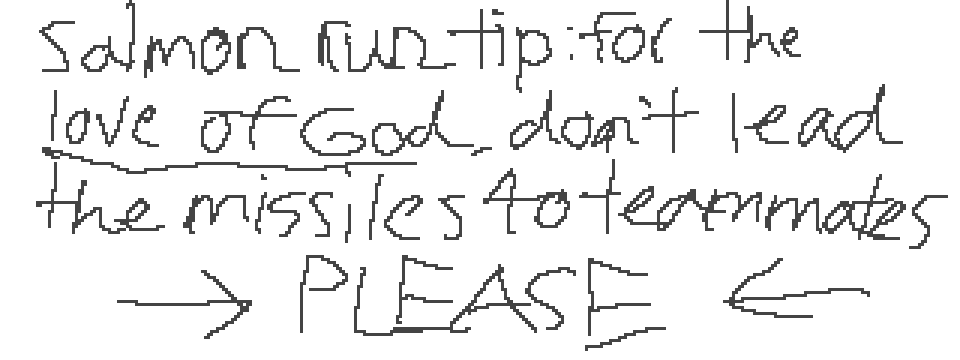 Salmon run tip: for the
love of God, don't lead
the missiles to teammates
→ PLEASE ←